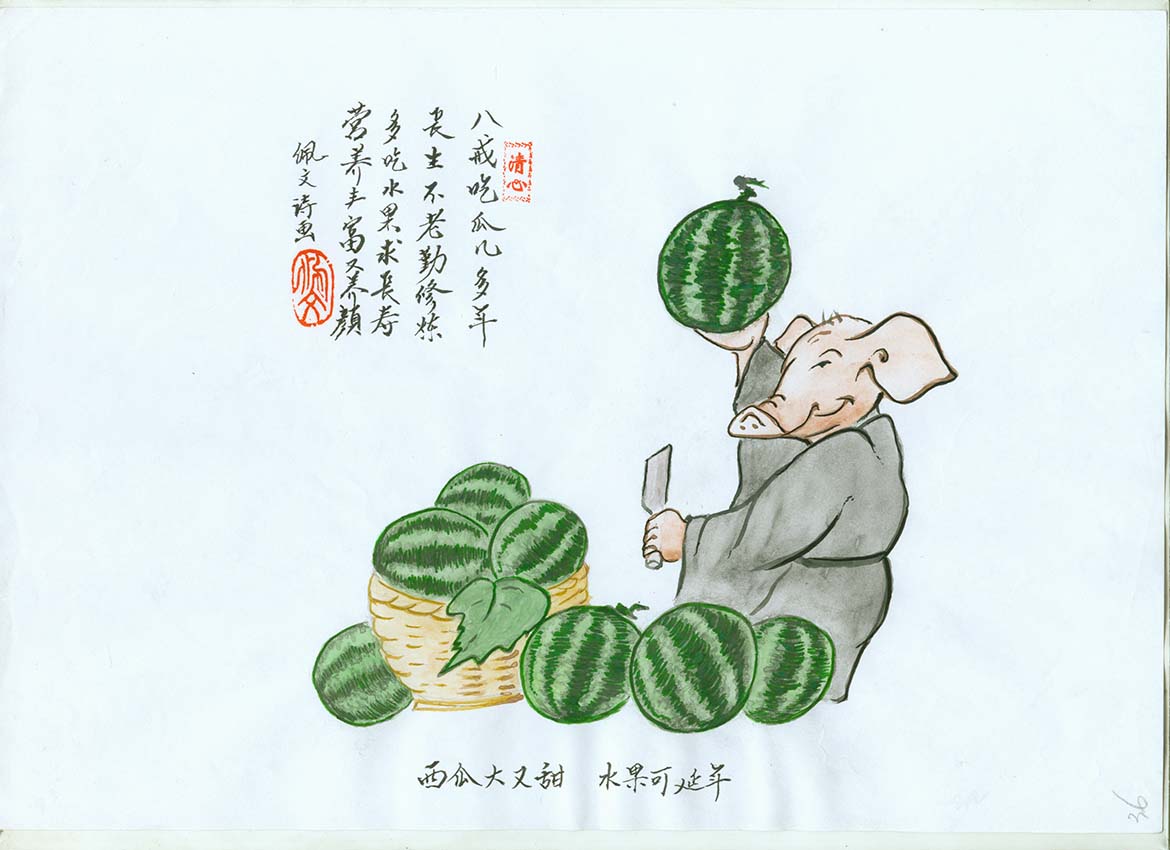 八戒吃瓜几多年
長生不老勤修炼
多吃水果求長寿
营养丰富又养顔
佩文诗画
清心
西瓜大又甜 水果可延年
36